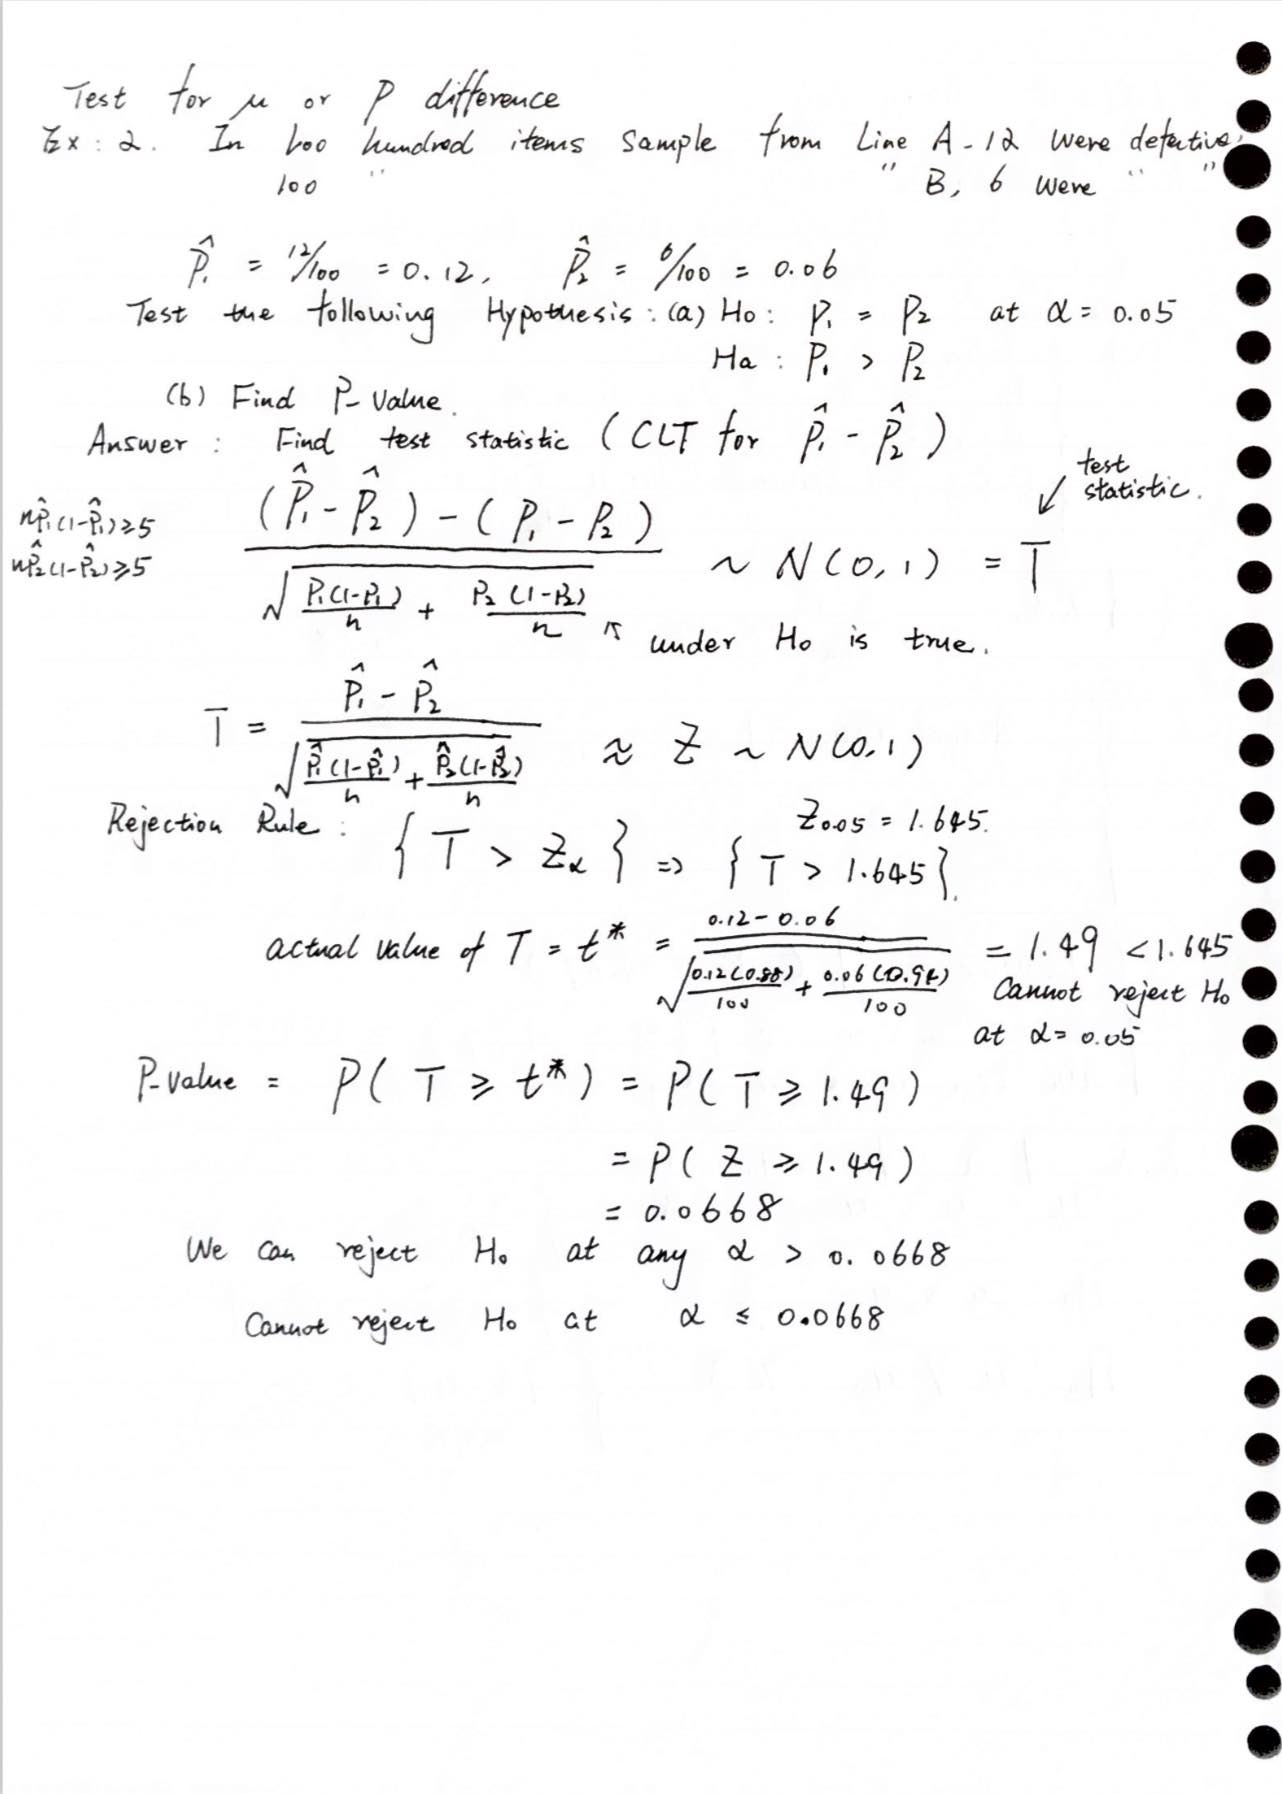 Test for μ or P difference
Ex: 2. In 100 hundred items sample from Line A - 12 were defective,
100 " " B, 6 were " "
P̂₁ = 12/100 = 0.12, P̂₂ = 6/100 = 0.06
Test the following Hypothesis: (a) Ho: P₁ = P₂ at α = 0.05
Ha: P₁ > P₂
(b) Find P-value.
Answer: Find test statistic (CLT for P̂₁ - P̂₂)
test statistic.
nP̂₁(1-P̂₁)≥5
nP̂₂(1-P̂₂)≥5
((P̂₁ - P̂₂) - (P₁ - P₂)) / √(P₁(1-P₁)/n + P₂(1-P₂)/n) ~ N(0,1) = T
under Ho is true.
T = (P̂₁ - P̂₂) / √(P̂₁(1-P̂₁)/n + P̂₂(1-P̂₂)/n) ≈ Z ~ N(0,1)
Z0.05 = 1.645.
Rejection Rule: {T > Zα} => {T > 1.645}.
actual value of T = t* = (0.12 - 0.06) / √(0.12(0.88)/100 + 0.06(0.94)/100) = 1.49 < 1.645
Cannot reject Ho
at α = 0.05
P-value = P(T ≥ t*) = P(T ≥ 1.49)
= P(Z ≥ 1.49)
= 0.0668
We can reject Ho at any α > 0.0668
Cannot reject Ho at α ≤ 0.0668